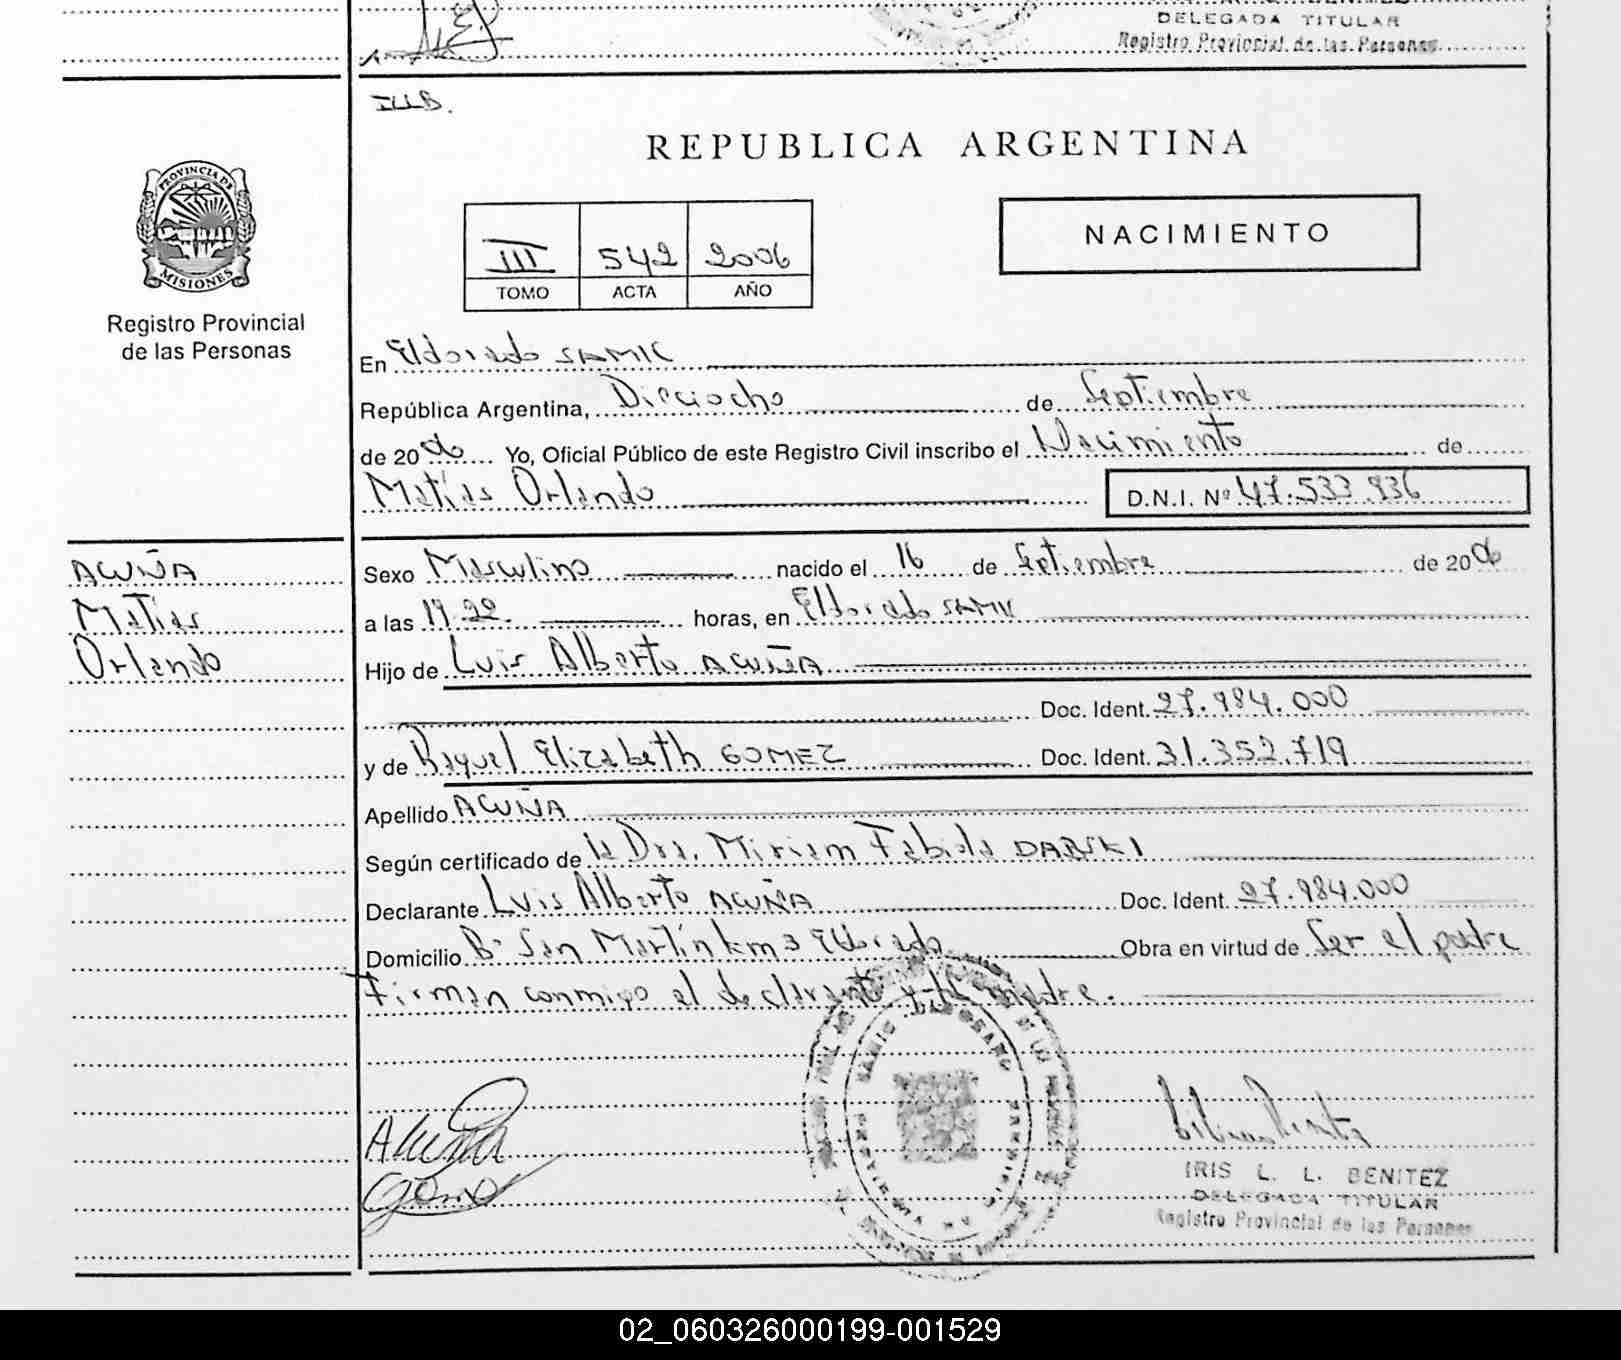 DELEGADA TITULAR
Registro Provincial de las Personas
REPUBLICA ARGENTINA
PROVINCIA DE
MISIONES
Registro Provincial
de las Personas
III 542 2006
TOMO ACTA AÑO
NACIMIENTO
En Eldorado SAMIC
República Argentina, Dieciocho de Septiembre
de 2006 Yo, Oficial Público de este Registro Civil inscribo el Nacimiento de
Matías Orlando D.N.I. Nº 47.533.936
ACUÑA
Matías
Orlando
Sexo Masculino nacido el 16 de Septiembre de 2006
a las horas, en Eldorado SAMIC
Hijo de Luis Alberto ACUÑA
Doc. Ident. 27.984.000
y de Raquel Elizabeth GOMEZ Doc. Ident. 31.352.719
Apellido ACUÑA
Según certificado de la Dra. Miriam Fabiola DARSKI
Declarante Luis Alberto ACUÑA Doc. Ident. 27.984.000
Domicilio Bº San Martín km 3 Eldorado Obra en virtud de Ser el padre
Firman conmigo el declarante y la madre.
Acuña
Gomez
IRIS L. L. BENITEZ
DELEGADA TITULAR
Registro Provincial de las Personas
02_060326000199-001529